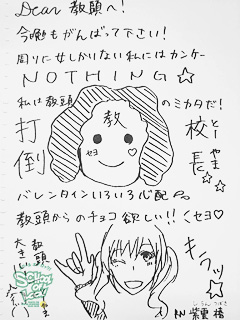 Dear 教頭へ!
今晩もがんばって下さい!
周りに女しかいない私にはカンケー
NOTHING☆
私は教頭のミカタだ!
打倒
教
セヨ♡
校長
とー
やま
バレンタインいろいろ心配
教頭からのチョコ欲しい!!くセヨ♡
教頭
大きい
キラッ☆
RN 紫電 椿